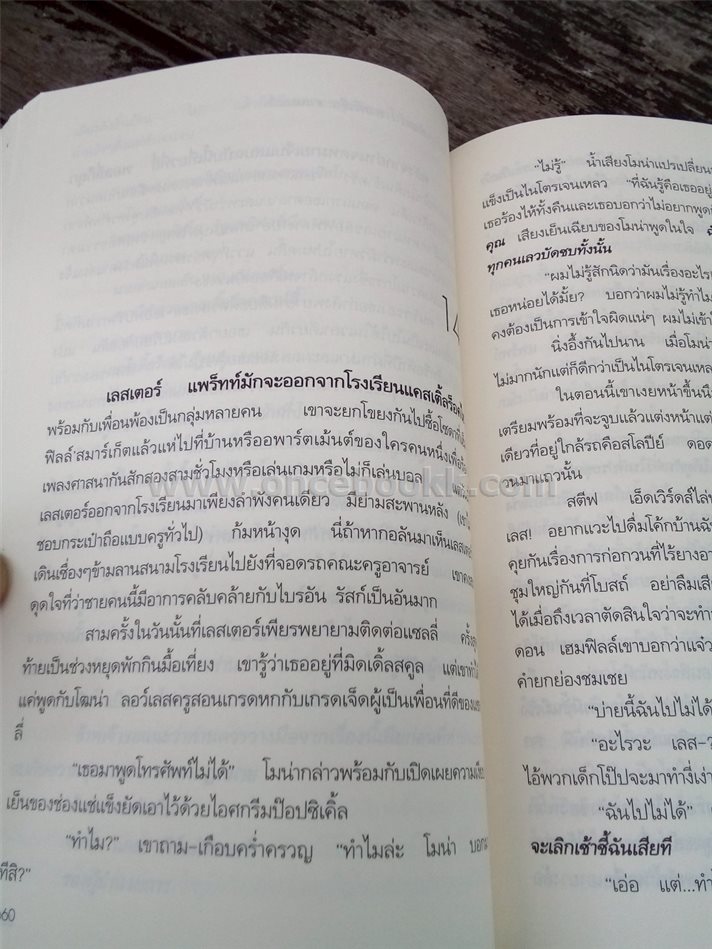 14
เลสเตอร์ แพร็ทท์มักจะออกจากโรงเรียนแคสเติ้ลร็อค
พร้อมกับเพื่อนพ้องเป็นกลุ่มหลายคน เขาจะยกโขยงกันไปซื้อโซดาที่
ฟิลล์สมาร์เก็ตแล้วแห่ไปที่บ้านหรืออพาร์ตเม้นต์ของใครคนหนึ่งเพื่อ
เพลงศาสนากันสักสองสามชั่วโมงหรือเล่นเกมหรือไม่ก็เล่นบอล
เลสเตอร์ออกจากโรงเรียนมาเพียงลำพังคนเดียว มีย่ามสะพานหลัง
ชอบกระเป๋าถือแบบครูทั่วไป) ก้มหน้างุด นี่ถ้าหากอลันมาเห็นเลส
เดินเชื่องๆข้ามลานสนามโรงเรียนไปยังที่จอดรถคณะครูอาจารย์
ดุดใจที่ว่าชายคนนี้มีอาการคลับคล้ายกับไบรอัน รัสก์เป็นอันมาก
สามครั้งในวันนั้นที่เลสเตอร์เพียรพยายามติดต่อแซลลี่ ครั้ง
ท้ายเป็นช่วงหยุดพักกินมื้อเที่ยง เขารู้ว่าเธออยู่ที่มิดเดิ้ลสคูล แต่เขาทำ
แค่พูดกับโฒน่า ลอว์เลสครูสอนเกรดหกกับเกรดเจ็ดผู้เป็นเพื่อนที่ดีของ
ลี่
"เธอมาพูดโทรศัพท์ไม่ได้" โมน่ากล่าวพร้อมกับเปิดเผยความ
เย็นของช่องแช่แข็งยัดเอาไว้ด้วยไอศกรีมป๊อปซิเคิ้ล
"ทำไม?" เขาถาม-เกือบคร่ำครวญ "ทำไมล่ะ โมน่า
ทีสิ?"
660
"ไม่รู้" น้ำเสียงโมน่าแปรเปลี่ยน
แข็งเป็นไนโตรเจนเหลว "ที่ฉันรู้คือเธออยู่
เธอร้องไห้ทั้งคืนและเธอบอกว่าไม่อยากพูด
คุณ เสียงเย็นเฉียบของโมน่าพูดในใจ
ทุกคนเลวบัดซบทั้งนั้น
"ผมไม่รู้สักนิดว่ามันเรื่องอะไร
เธอหน่อยได้มั้ย? บอกว่าผมไม่รู้ทำไม
คงต้องเป็นการเข้าใจผิดแน่ๆ ผมไม่เข้า
นิ่งอึ้งกันไปนาน เมื่อโมน่า
ไม่มากนักแต่ก็ดีกว่าเป็นไนโตรเจนเหล
ในตอนนี้เขาเงยหน้าขึ้น
เตรียมพร้อมที่จะจูบแล้วแต่งหน้าแต่
เดียวที่อยู่ใกล้รถคือสโลปีย์ ดอด
วนมาแถวนั้น
สตีฟ เอ็ดเวิร์ดส์ไล่
เลส! อยากแวะไปดื่มโค้กบ้านฉัน
คุยกันเรื่องการก่อกวนที่ไร้ยางอาย
ชุมใหญ่กันที่โบสถ์ อย่าลืมเสีย
ได้เมื่อถึงเวลาตัดสินใจว่าจะทำ
ดอน เฮมฟิลล์เขาบอกว่าแจ๋ว
คำยกยองชมเชย
"บ่ายนี้ฉันไปไม่ได้
"อะไรวะ เลส-?
ไอ้พวกเด็กโป๊ปจะมาทำงี่เง่า
"ฉันไปไม่ได้"
จะเลิกเซ้าซี้ฉันเสียที
"เอ่อ แต่...ทำ
www.oncebookk.com